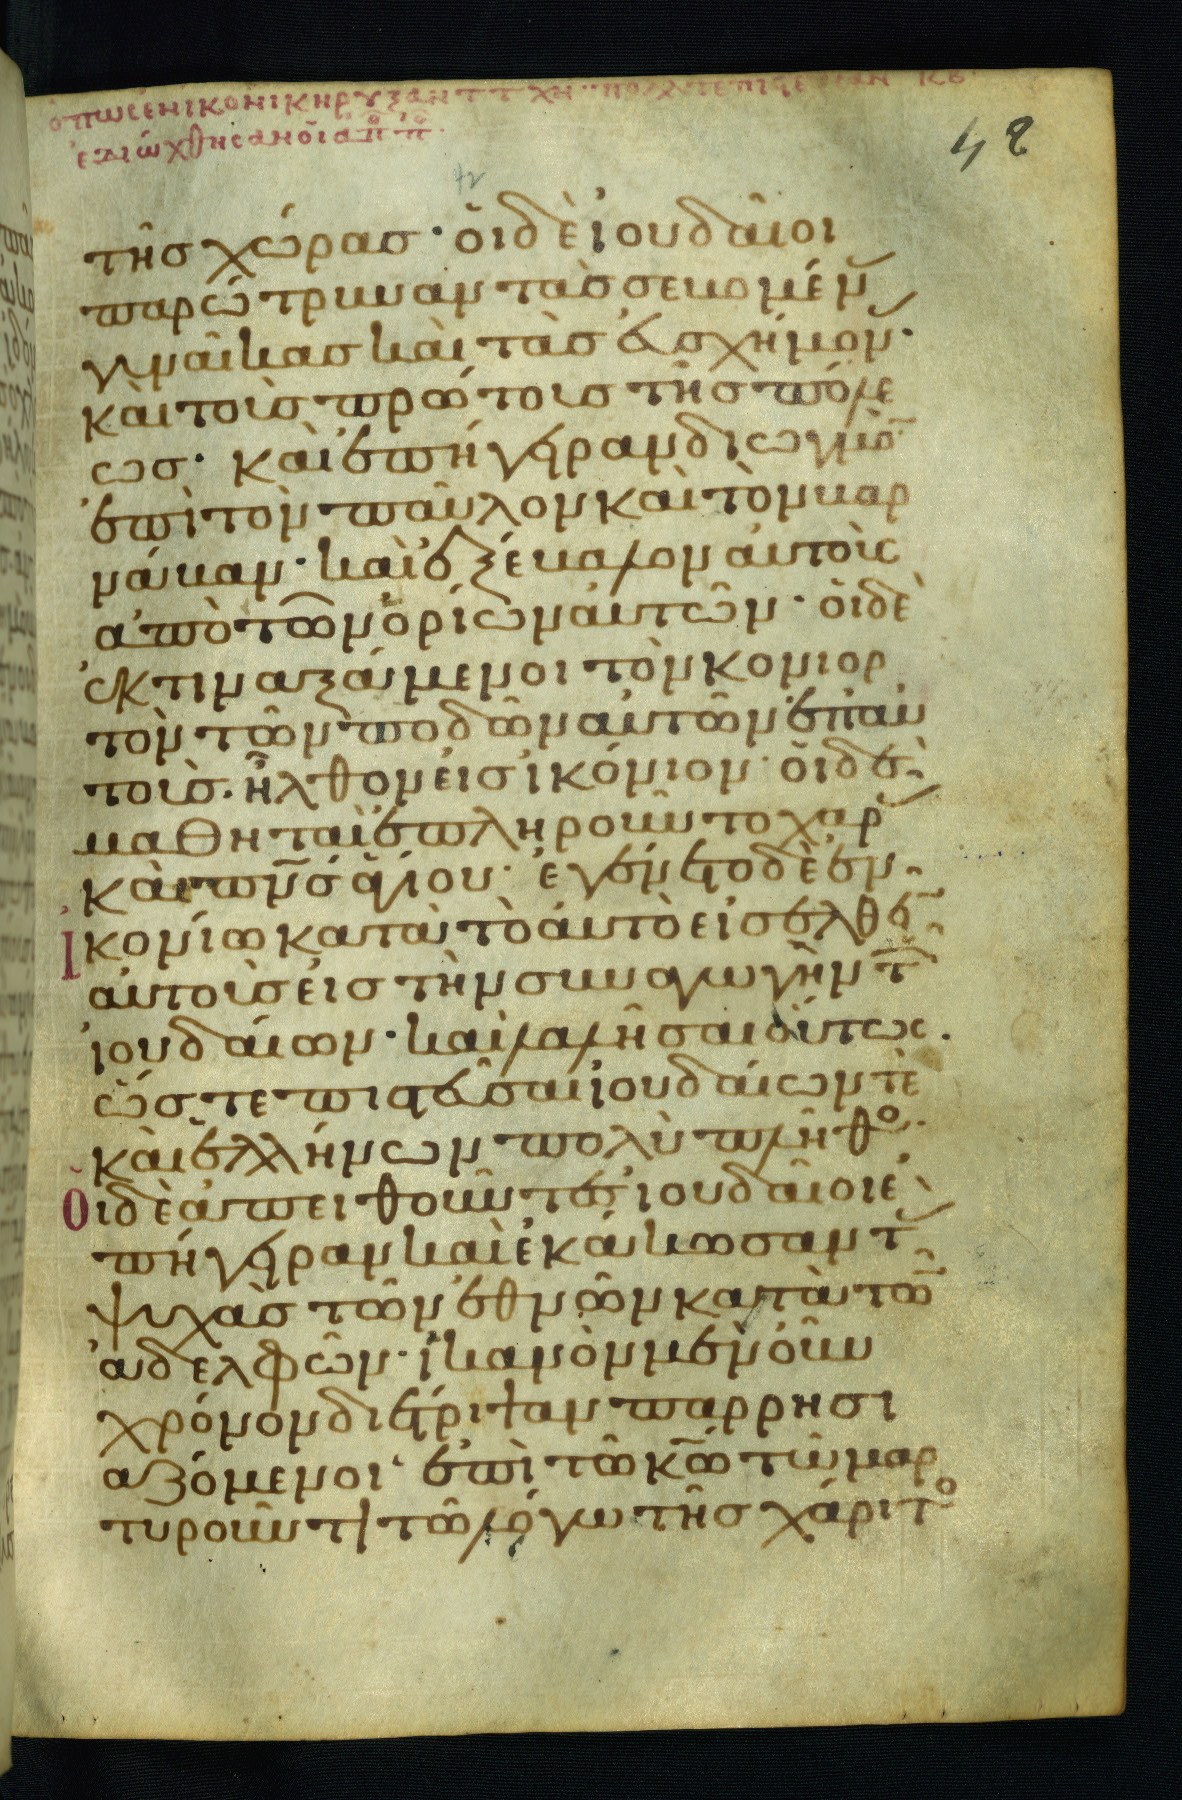 ὅπως ἐν ἰκονί κηρύξαντ
ἐδιώχθησαν οἱ ἀπ
48
τῆς χώρας· οἱ δὲ ἰουδαῖοι
παρώτρυναν τὰς σεβομέν
γυναῖκας καὶ τὰς εὐσχήμον·
καὶ τοὺς πρώτους τῆς πόλε
ως· καὶ ἐπήγειραν διωγμὸ
ἐπὶ τὸν παῦλον καὶ τὸν βαρ
νάβαν· καὶ ἐξέβαλον αὐτοὺς
ἀπὸ τῶν ὁρίων αὐτῶν· οἱ δὲ
ἐκτιναξάμενοι τὸν κονιορ
τὸν τῶν ποδῶν αὐτῶν ἐπ αὐ
τοὺς· ἦλθον εἰς ἰκόνιον· οἱ δὲ
μαθηταὶ ἐπληροῦντο χαρ
καὶ πνς ἁγίου· ἐγένετο δὲ ἐν
ἰκονίω κατὰ τὸ αὐτὸ εἰσελθεῖ
αὐτοὺς εἰς τὴν συναγωγὴν τ
ἰουδαίων· καὶ λαλῆσαι οὕτως·
ὥστε πιστεῦσαι ἰουδαίων τὲ
καὶ ἑλλήνων πολὺ πλῆθο·
Οἱ δὲ ἀπειθοῦντες ἰουδαῖοι ἐ
πήγειραν καὶ ἐκάκωσαν τ
ψυχὰς τῶν ἐθνῶν κατὰ τῶ
ἀδελφῶν· ἱκανὸν μὲν οὖν
χρόνον διέτριψαν παρρησι
αζόμενοι· ἐπὶ τῶ κῶ τῶ μαρ
τυροῦντι τῶ λόγω τῆς χάριτο